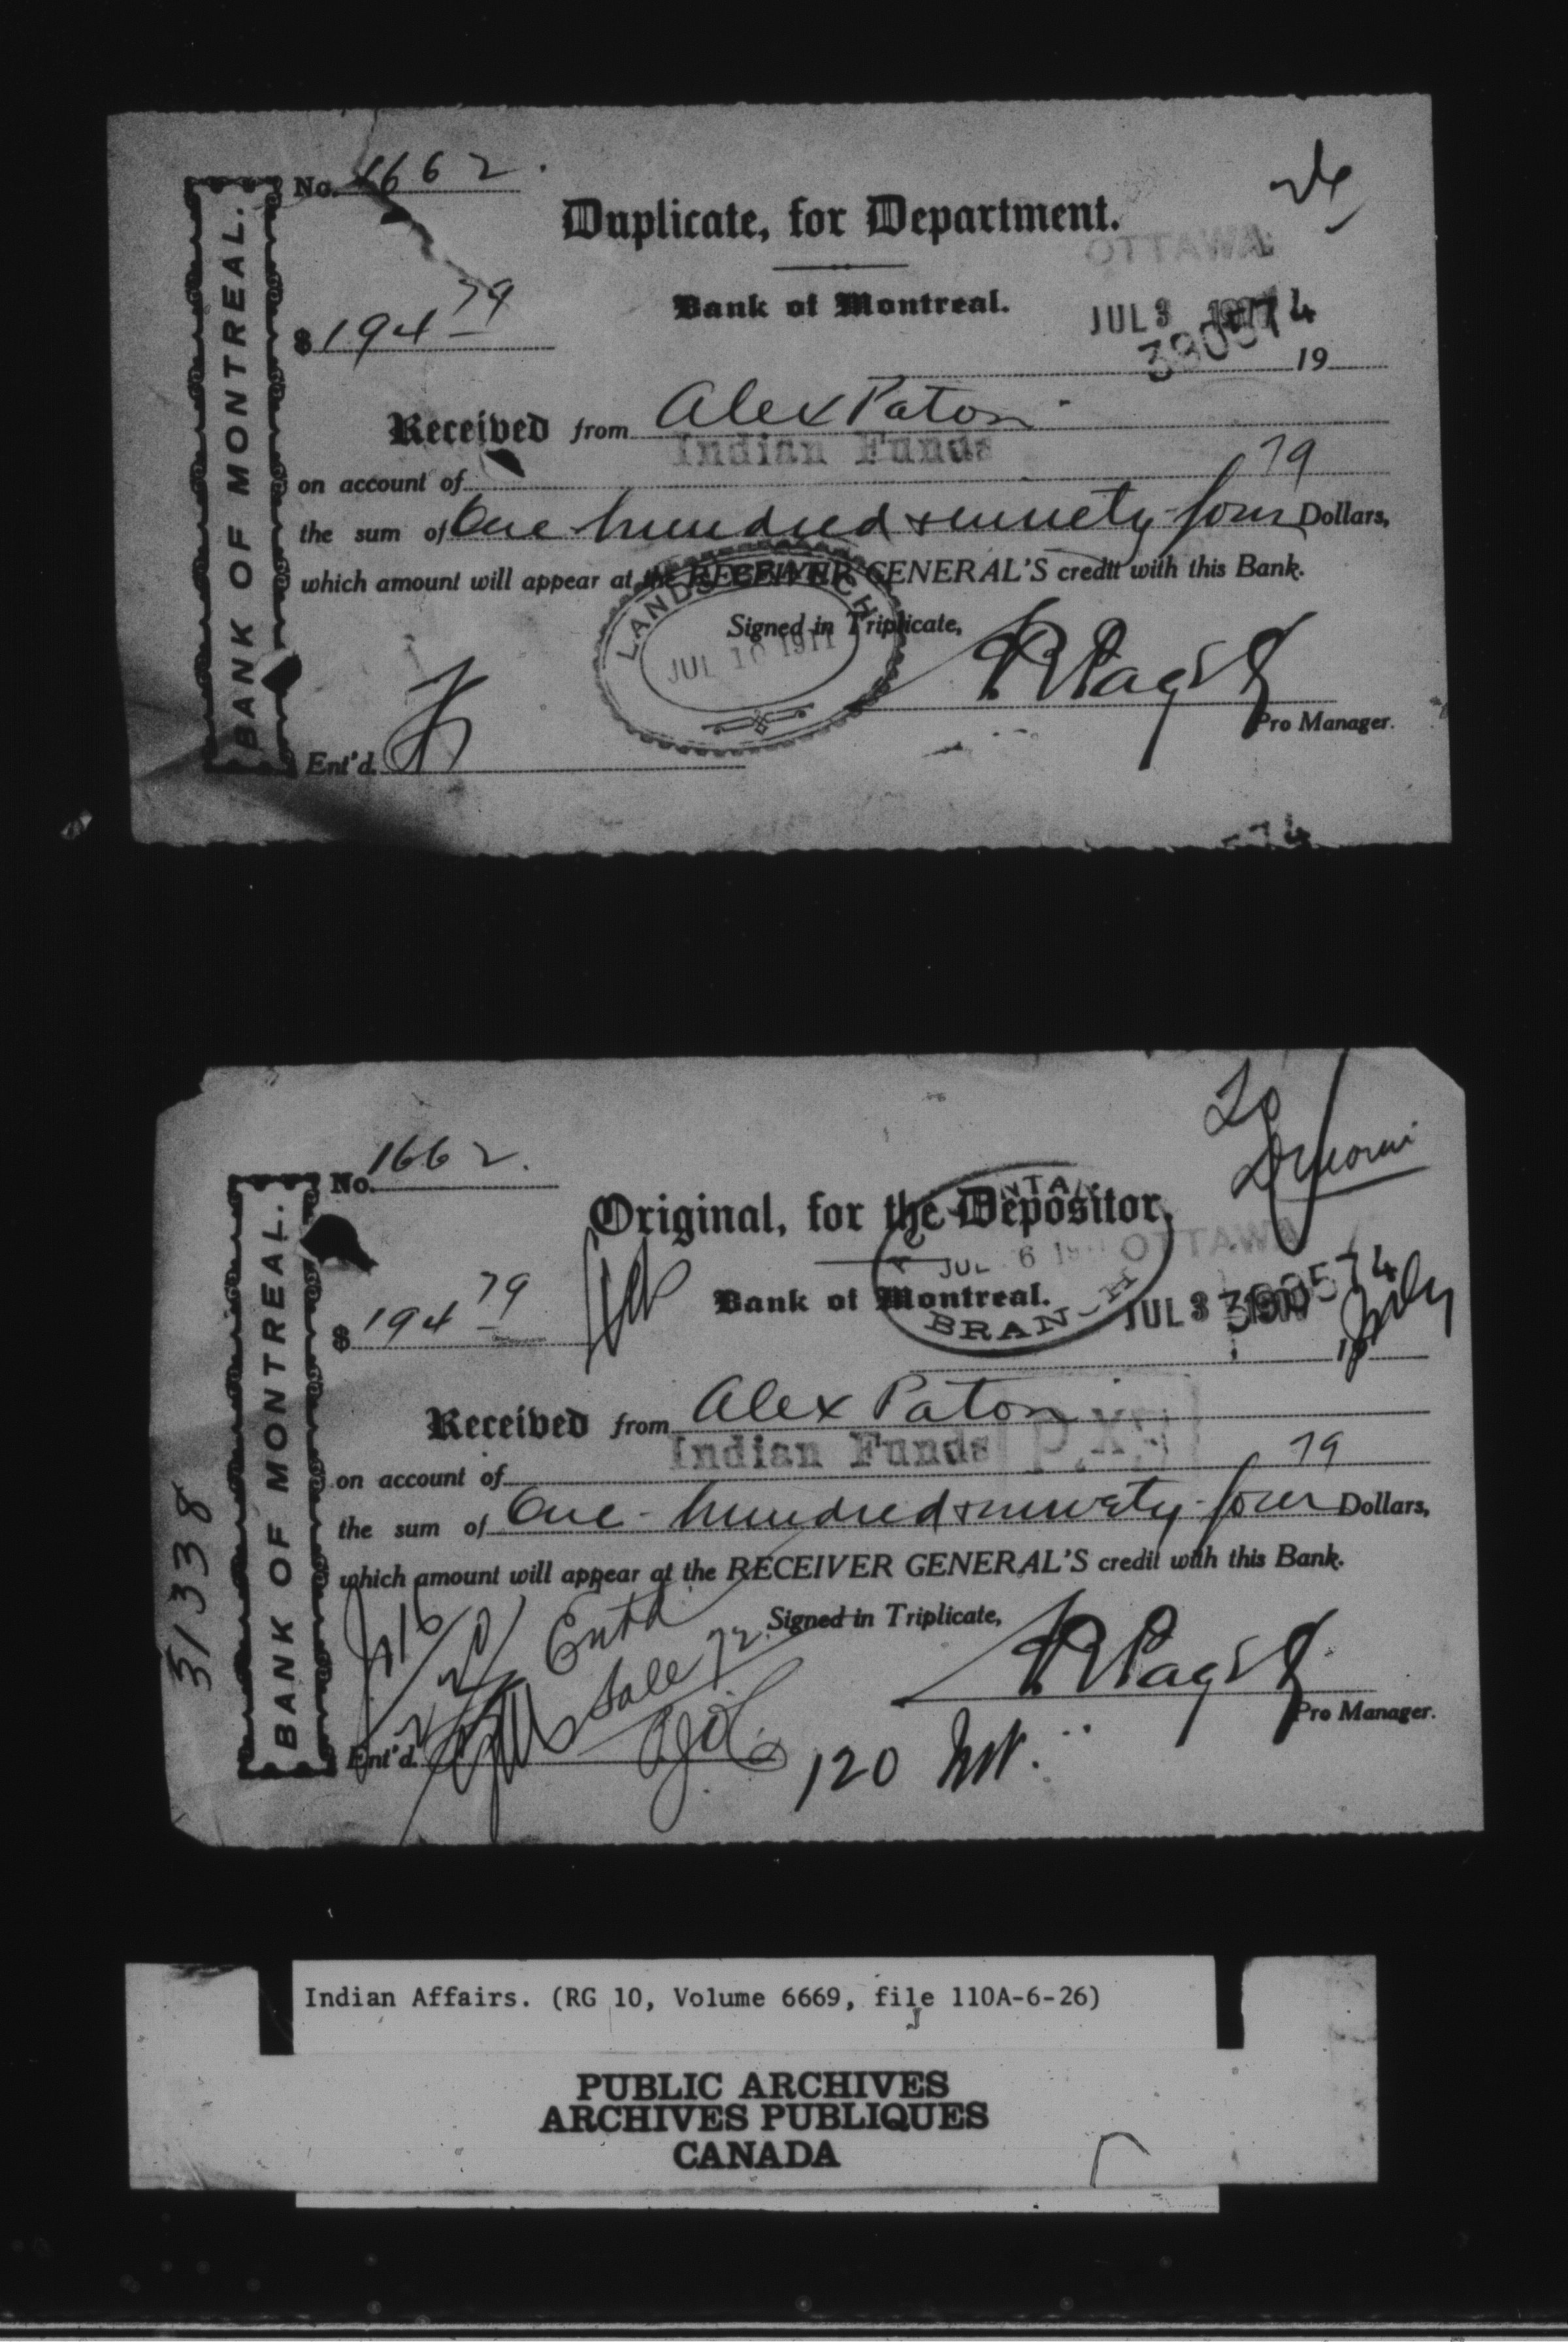 No. 1662.
Duplicate, for Department.
OTTAWA
Bank of Montreal.
$ 194 79
JUL 3 1911
380574
19
Received from Alex Paton
Indian Funds
on account of
79
the sum of One hundred & ninety-four Dollars,
which amount will appear at the RECEIVER GENERAL'S credit with this Bank.
LANDS BRANCH
JUL 10 1911
Signed in Triplicate,
Pro Manager.
Ent'd.
BANK OF MONTREAL.
No. 1662.
Original, for the Depositor.
JUL 6
BRANCH
OTTAWA
$ 194 79
Bank of Montreal.
JUL 3 1911
380574
Received from Alex Paton
Indian Funds
on account of
79
the sum of One hundred & ninety-four Dollars,
which amount will appear at the RECEIVER GENERAL'S credit with this Bank.
Signed in Triplicate,
Entd
Sale 72.
Pro Manager.
Ent'd.
120
BANK OF MONTREAL.
51338
Indian Affairs. (RG 10, Volume 6669, file 110A-6-26)
PUBLIC ARCHIVES
ARCHIVES PUBLIQUES
CANADA